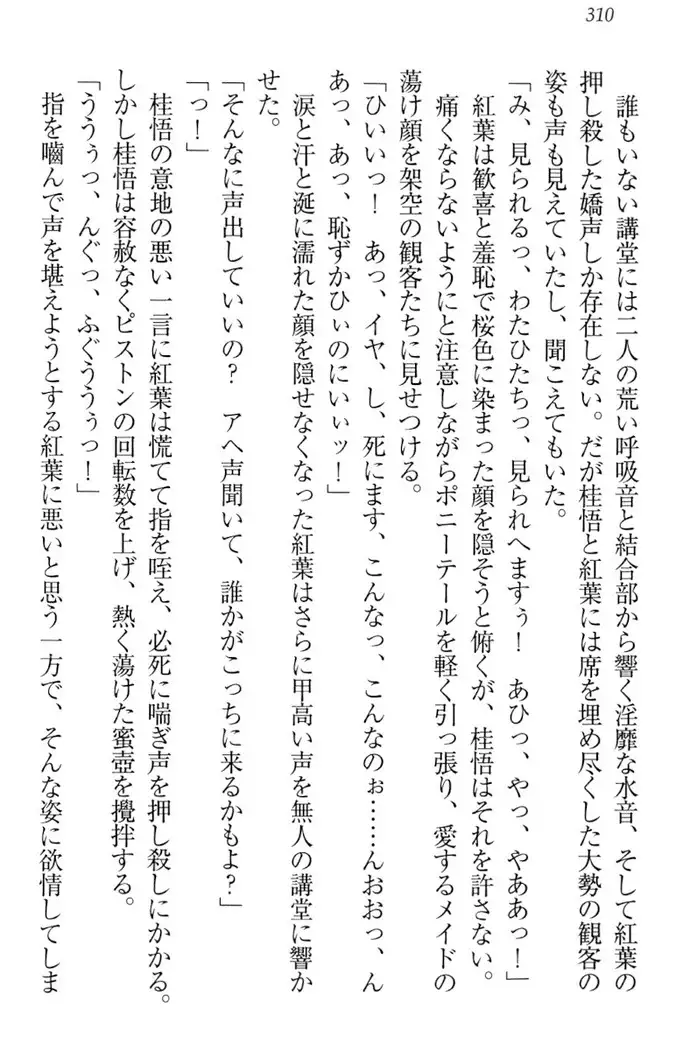 310
　誰もいない講堂には二人の荒い呼吸音と結合部から響く淫靡な水音、そして紅葉の
押し殺した嬌声しか存在しない。だが桂悟と紅葉には席を埋め尽くした大勢の観客の
姿も声も見えていたし、聞こえてもいた。
「み、見られるっ、わたひたちっ、見られへますぅ！　あひっ、やっ、やああっ！」
　紅葉は歓喜と羞恥で桜色に染まった顔を隠そうと俯くが、桂悟はそれを許さない。
　痛くならないようにと注意しながらポニーテールを軽く引っ張り、愛するメイドの
蕩け顔を架空の観客たちに見せつける。
「ひいいっ！　あっ、イヤ、し、死にます、こんなっ、こんなのぉ……んおおっ、ん
あっ、あっ、恥ずかひぃのにいぃッ！」
　涙と汗と涎に濡れた顔を隠せなくなった紅葉はさらに甲高い声を無人の講堂に響か
せた。
「そんなに声出していいの？　アヘ声聞いて、誰かがこっちに来るかもよ？」
「っ！」
　桂悟の意地の悪い一言に紅葉は慌てて指を咥え、必死に喘ぎ声を押し殺しにかかる。
しかし桂悟は容赦なくピストンの回転数を上げ、熱く蕩けた蜜壺を攪拌する。
「ううぅっ、んぐっ、ふぐううぅっ！」
　指を嚙んで声を堪えようとする紅葉に悪いと思う一方で、そんな姿に欲情してしま